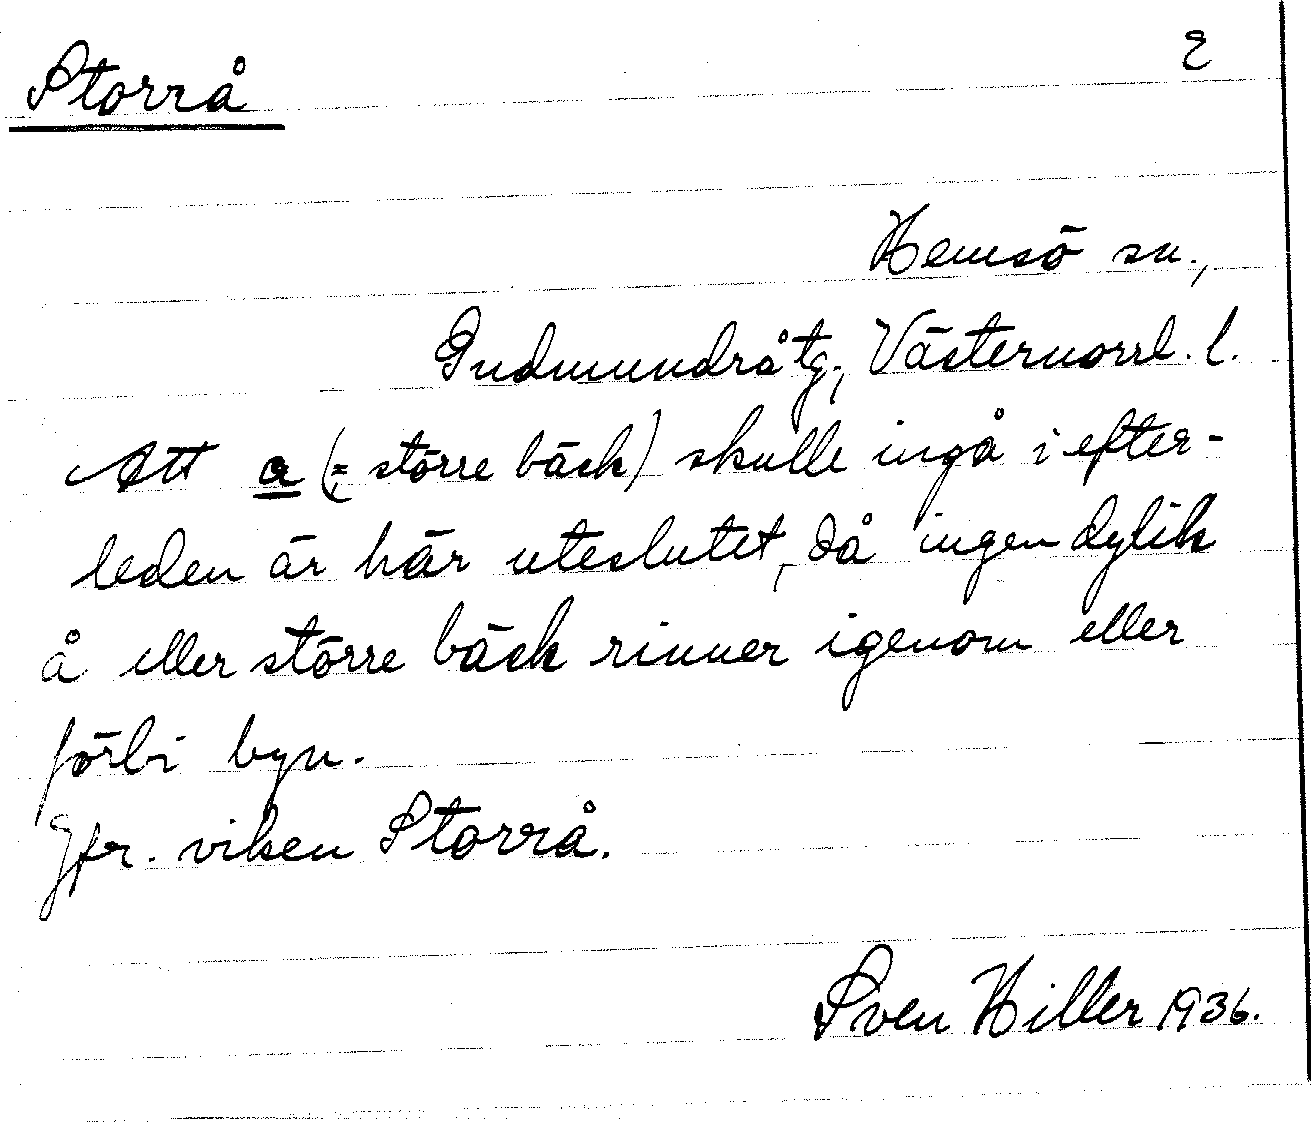 Storrå
2
Hemsö sn.,
Gudmundrå tg., Västernorrl. l.
Att a (= större bäck) skulle ingå i efter-
leden är här uteslutet, då ingen dylik
å eller större bäck rinner igenom eller
förbi byn.
Jfr. viken Storrå.
Sven Hiller 1936.